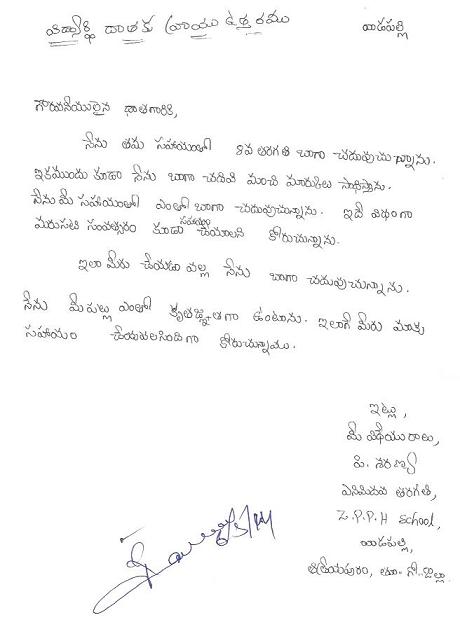 విద్యార్థి దాతకు వ్రాయు ఉత్తరము
యిడపల్లి
గౌరవనీయులైన దాతగారికి,
నేను తమ సహాయంతో 8వ తరగతి బాగా చదువుచున్నాను.
ఇకముందు కూడా నేను బాగా చదివి మంచి మార్కులు సాధిస్తాను.
నేను మీ సహాయంతో ఎంతో బాగా చదువుచున్నాను. ఇదే విధంగా
మరుసటి సంవత్సరం కూడా సహాయం చేయాలని కోరుచున్నాను.
ఇలా మీరు చేయడం వల్ల నేను బాగా చదువుచున్నాను.
నేను మీ పట్ల ఎంతో కృతజ్ఞతగా ఉంటాను. ఇలాగే మీరు మాకు
సహాయం చేయవలసిందిగా కోరుచున్నాము.
ఇట్లు,
మీ విధేయురాలు,
పి. శరణ్య
ఎనిమిదవ తరగతి,
Z.P.P.H School,
యిడపల్లి,
ఆత్రేయపురం, తూ. గో. జిల్లా.